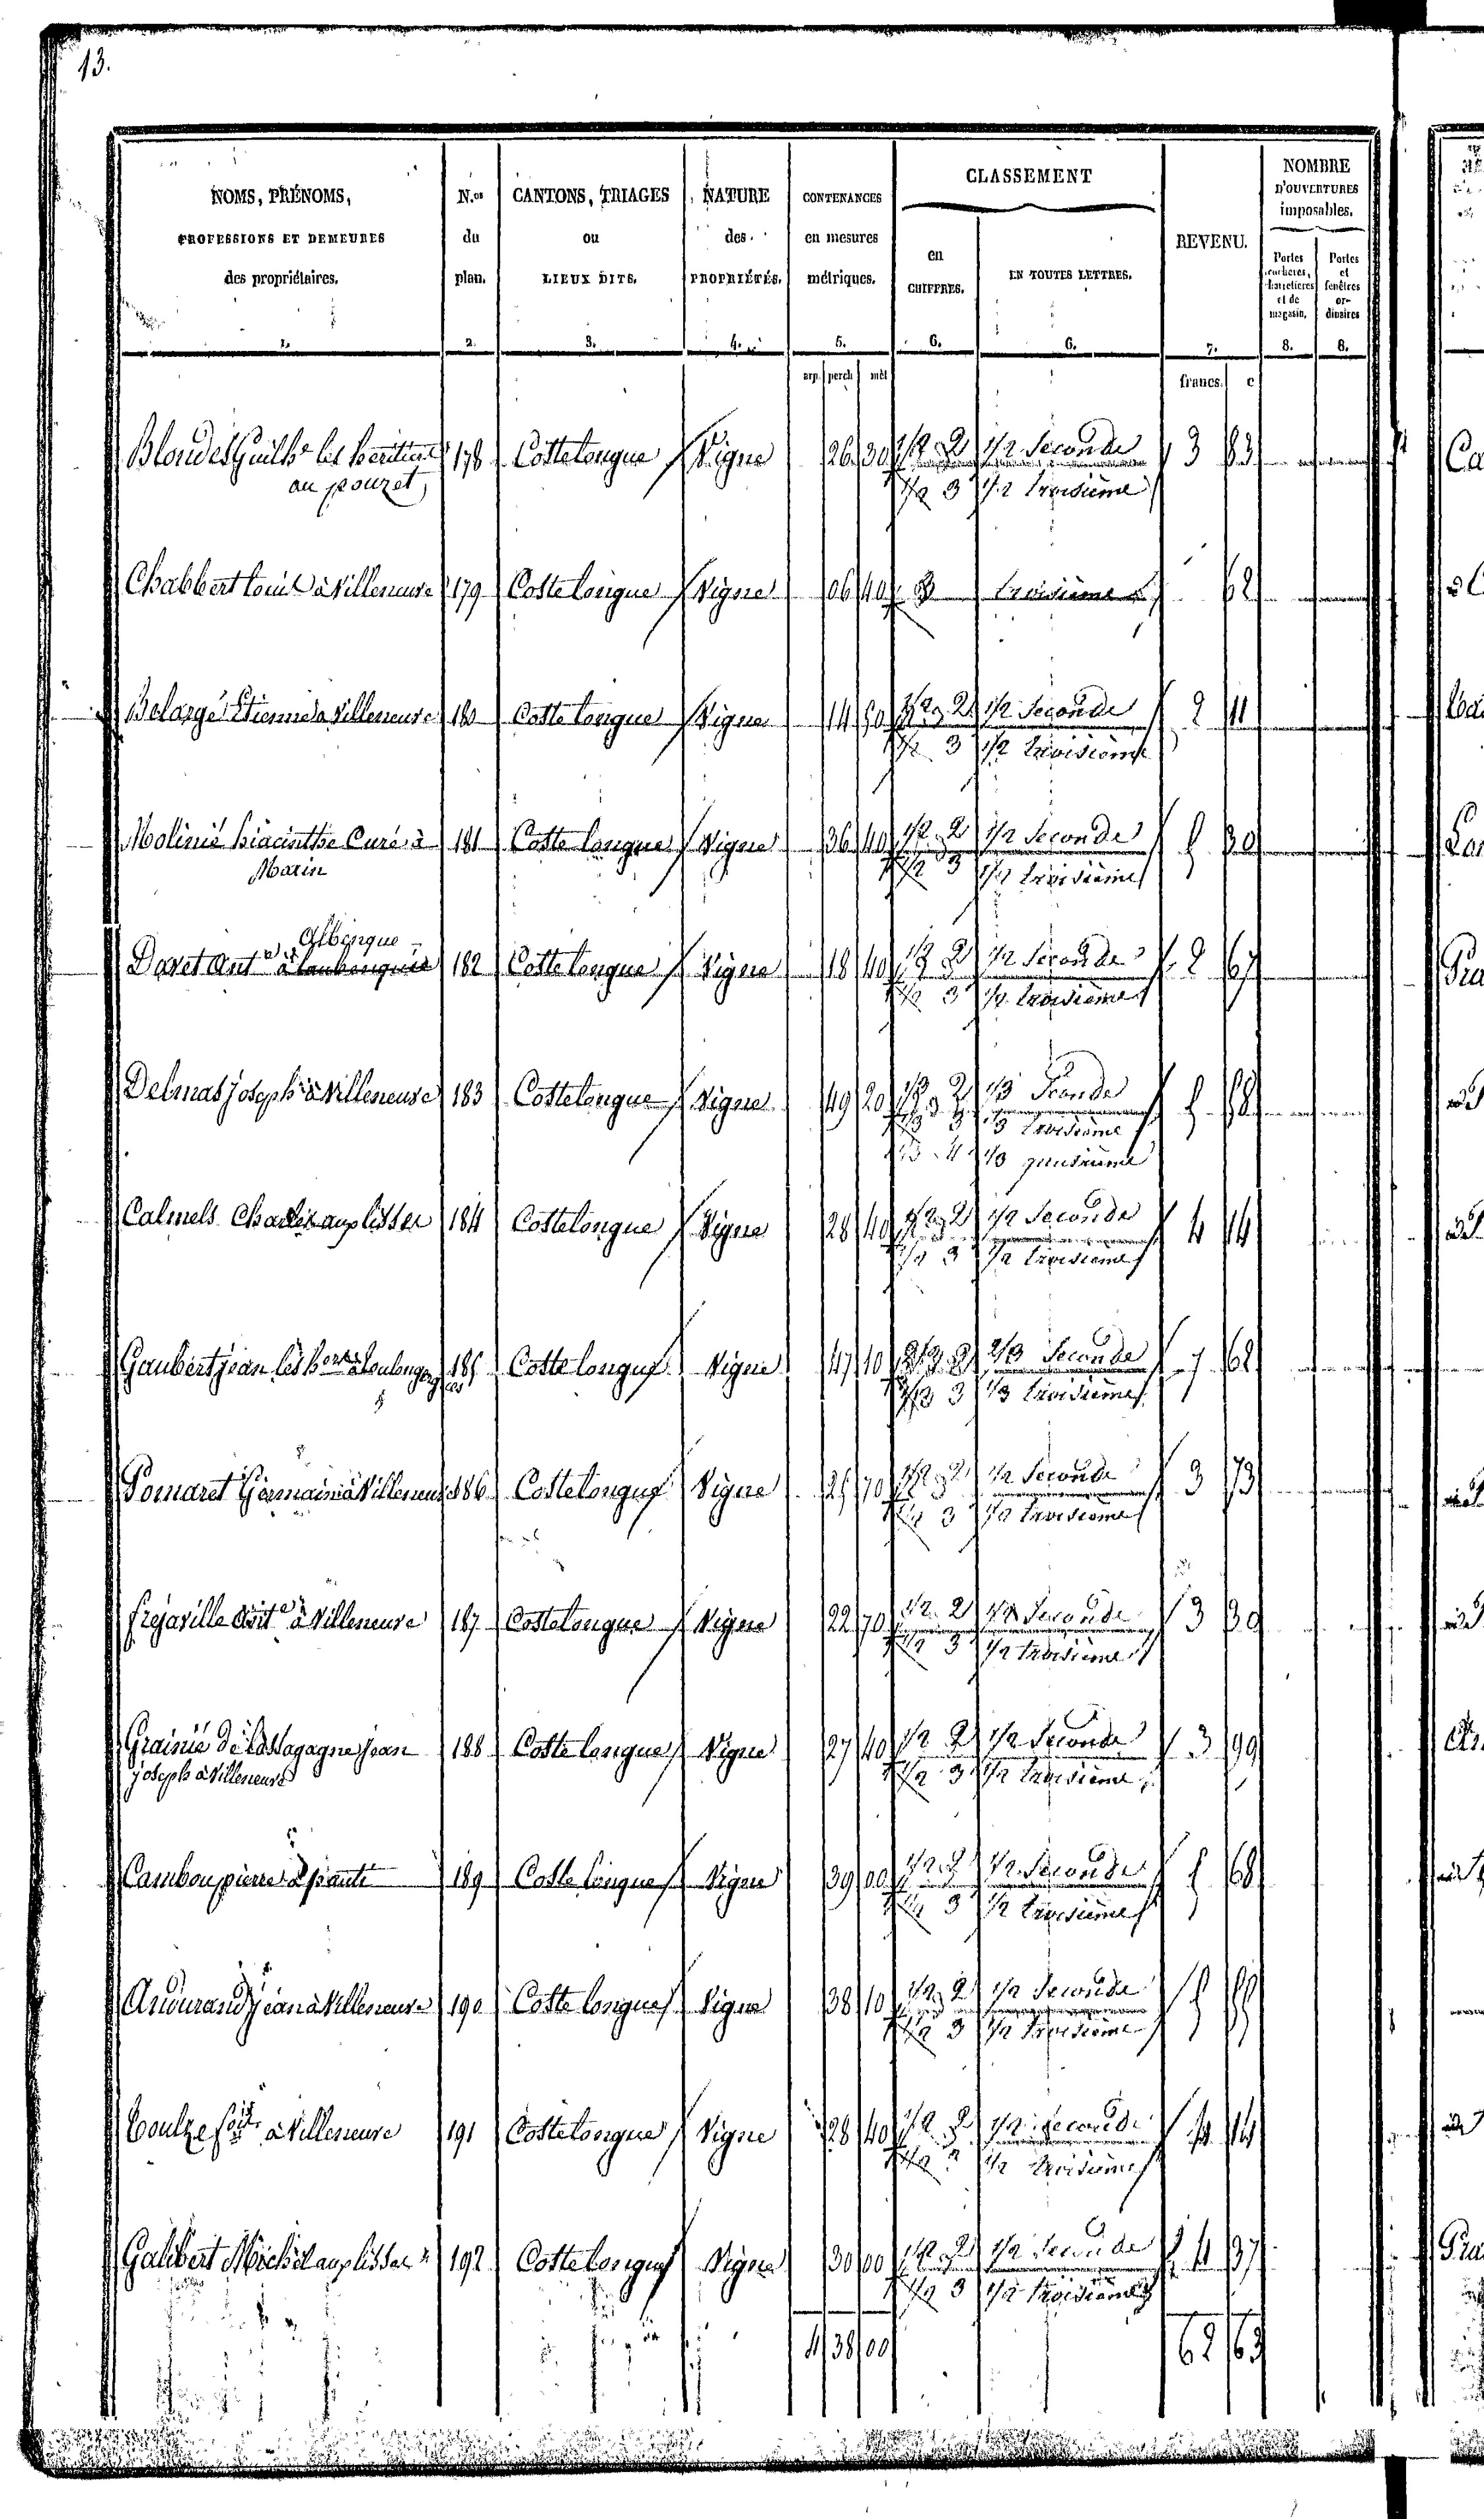 13.
NOMS, PRÉNOMS, PROFESSIONS ET DEMEURES des propriétaires. 1.
N.os du plan. 2.
CANTONS, TRIAGES ou LIEUX DITS. 3.
NATURE des PROPRIÉTÉS. 4.
CONTENANCES en mesures métriques. 5.
CLASSEMENT
en CHIFFRES. 6.
EN TOUTES LETTRES. 6.
REVENU. 7.
NOMBRE D'OUVERTURES imposables.
Portes cochères, charretières et de magasin. 8.
Portes et fenêtres ordinaires 8.
arp. perch. mèt francs. c
Blondel Guilhe les héritiers 178 Costelongue Vigne 26 30 1/2 2 1/2 Seconde 3 83
au pouzet 1/2 3 1/2 troisième
Chabbert Louis à Villeneuve 179 Costelongue Vigne 06 40 3 troisième 62
Belargé Etienne à Villeneuve 180 Costelongue Vigne 14 50 1/2 2 1/2 Seconde 2 11
1/2 3 1/2 troisième
Molinié hiacinthe Curé à 181 Coste longue Vigne 36 40 1/2 2 1/2 Seconde 5 30
Marin 1/2 3 1/2 troisième
Albenque
Daret Ant 182 Costelongue Vigne 18 40 1/2 2 1/2 Seconde 2 67
1/2 3 1/2 troisième
Delmas joseph à Villeneuve 183 Costelongue Vigne 49 20 1/3 2 1/3 Seconde 5 58
1/3 3 1/3 troisième
1/3 4 1/3 quatrième
Calmels Charles aux lisses 184 Costelongue Vigne 28 40 1/2 2 1/2 Seconde 4 14
1/2 3 1/2 troisième
Gaubert jean les hers à 185 Costelongue Vigne 47 10 2/3 2 2/3 Seconde 7 62
1/3 3 1/3 troisième
Pomaret Germain à Villeneuve 186 Costelongue Vigne 25 70 1/2 2 1/2 Seconde 3 73
1/2 3 1/2 troisième
frejaville à Villeneuve 187 Costelongue Vigne 22 70 1/2 2 1/2 Seconde 3 30
1/2 3 1/2 troisième
Grainié de Lassagagne jean 188 Coste longue Vigne 27 40 1/2 2 1/2 Seconde 3 99
joseph à Villeneuve 1/2 3 1/2 troisième
Cambou pierre à 189 Coste longue Vigne 39 00 1/2 2 1/2 Seconde 5 68
1/2 3 1/2 troisième
Andurand jean à Villeneuve 190 Coste longue Vigne 38 10 1/2 2 1/2 Seconde 5 55
1/2 3 1/2 troisième
à Villeneuve 191 Costelongue Vigne 28 40 1/2 2 1/2 Seconde 4 14
1/2 3 1/2 troisième
Galibert Michel aux lisses 192 Costelongue Vigne 30 00 1/2 2 1/2 Seconde 4 37
1/2 3 1/2 troisième
4 38 00 62 63